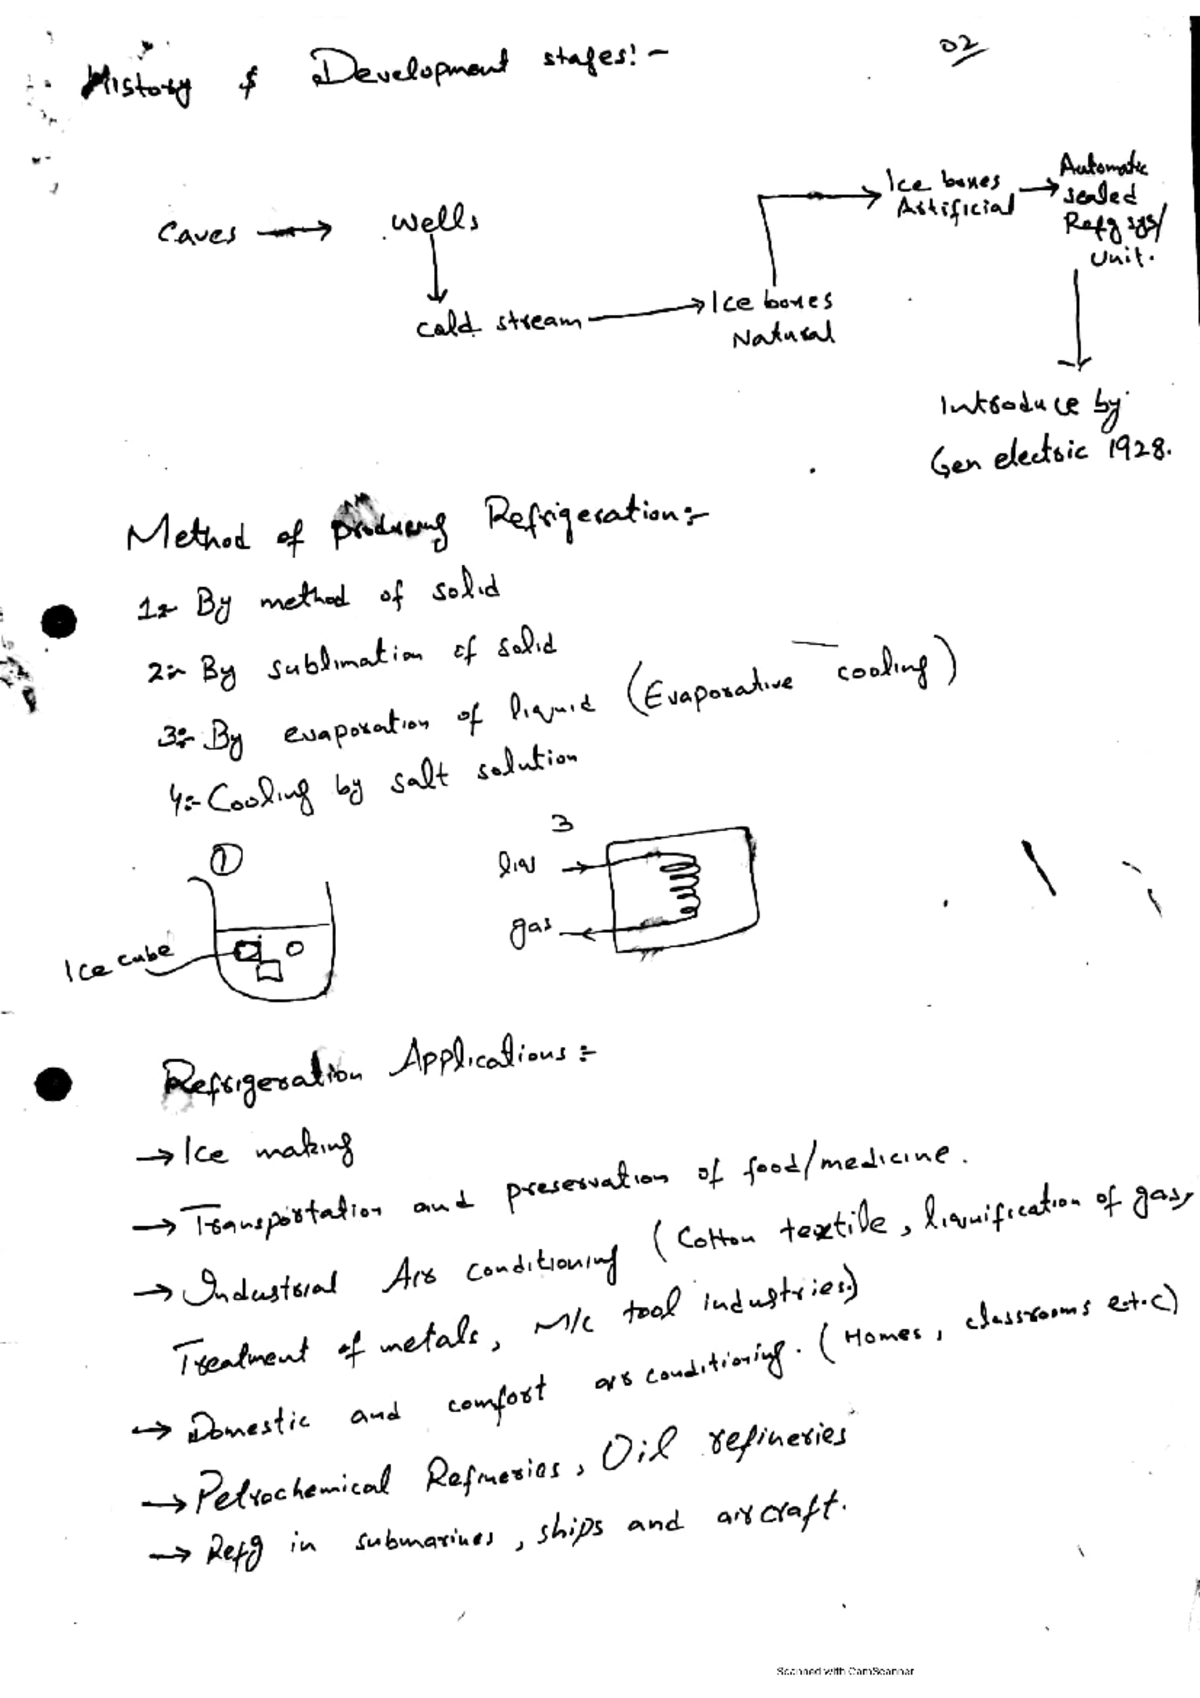 02
History & Development stages:-
Caves → Wells
Cold stream → Ice boxes
Natural
Ice boxes →
Artificial
Automatic
sealed
Refg sys/
Unit.
Introduce by
Gen electric 1928.
Method of producing Refrigeration:-
1:- By method of solid
2:- By sublimation of solid
3:- By evaporation of liquid (Evaporative cooling)
4:- Cooling by salt solution
1
Ice cube
3
liq
gas
Refrigeration Applications:-
→ Ice making
→ Transportation and preservation of food/medicine.
→ Industrial Air conditioning (Cotton textile, liquification of gas,
Treatment of metals, M/c tool industries.)
→ Domestic and comfort air conditioning. (Homes, classrooms e.t.c)
→ Petrochemical Refineries, Oil refineries
→ Refg in submarines, ships and aircraft.
Scanned with CamScanner